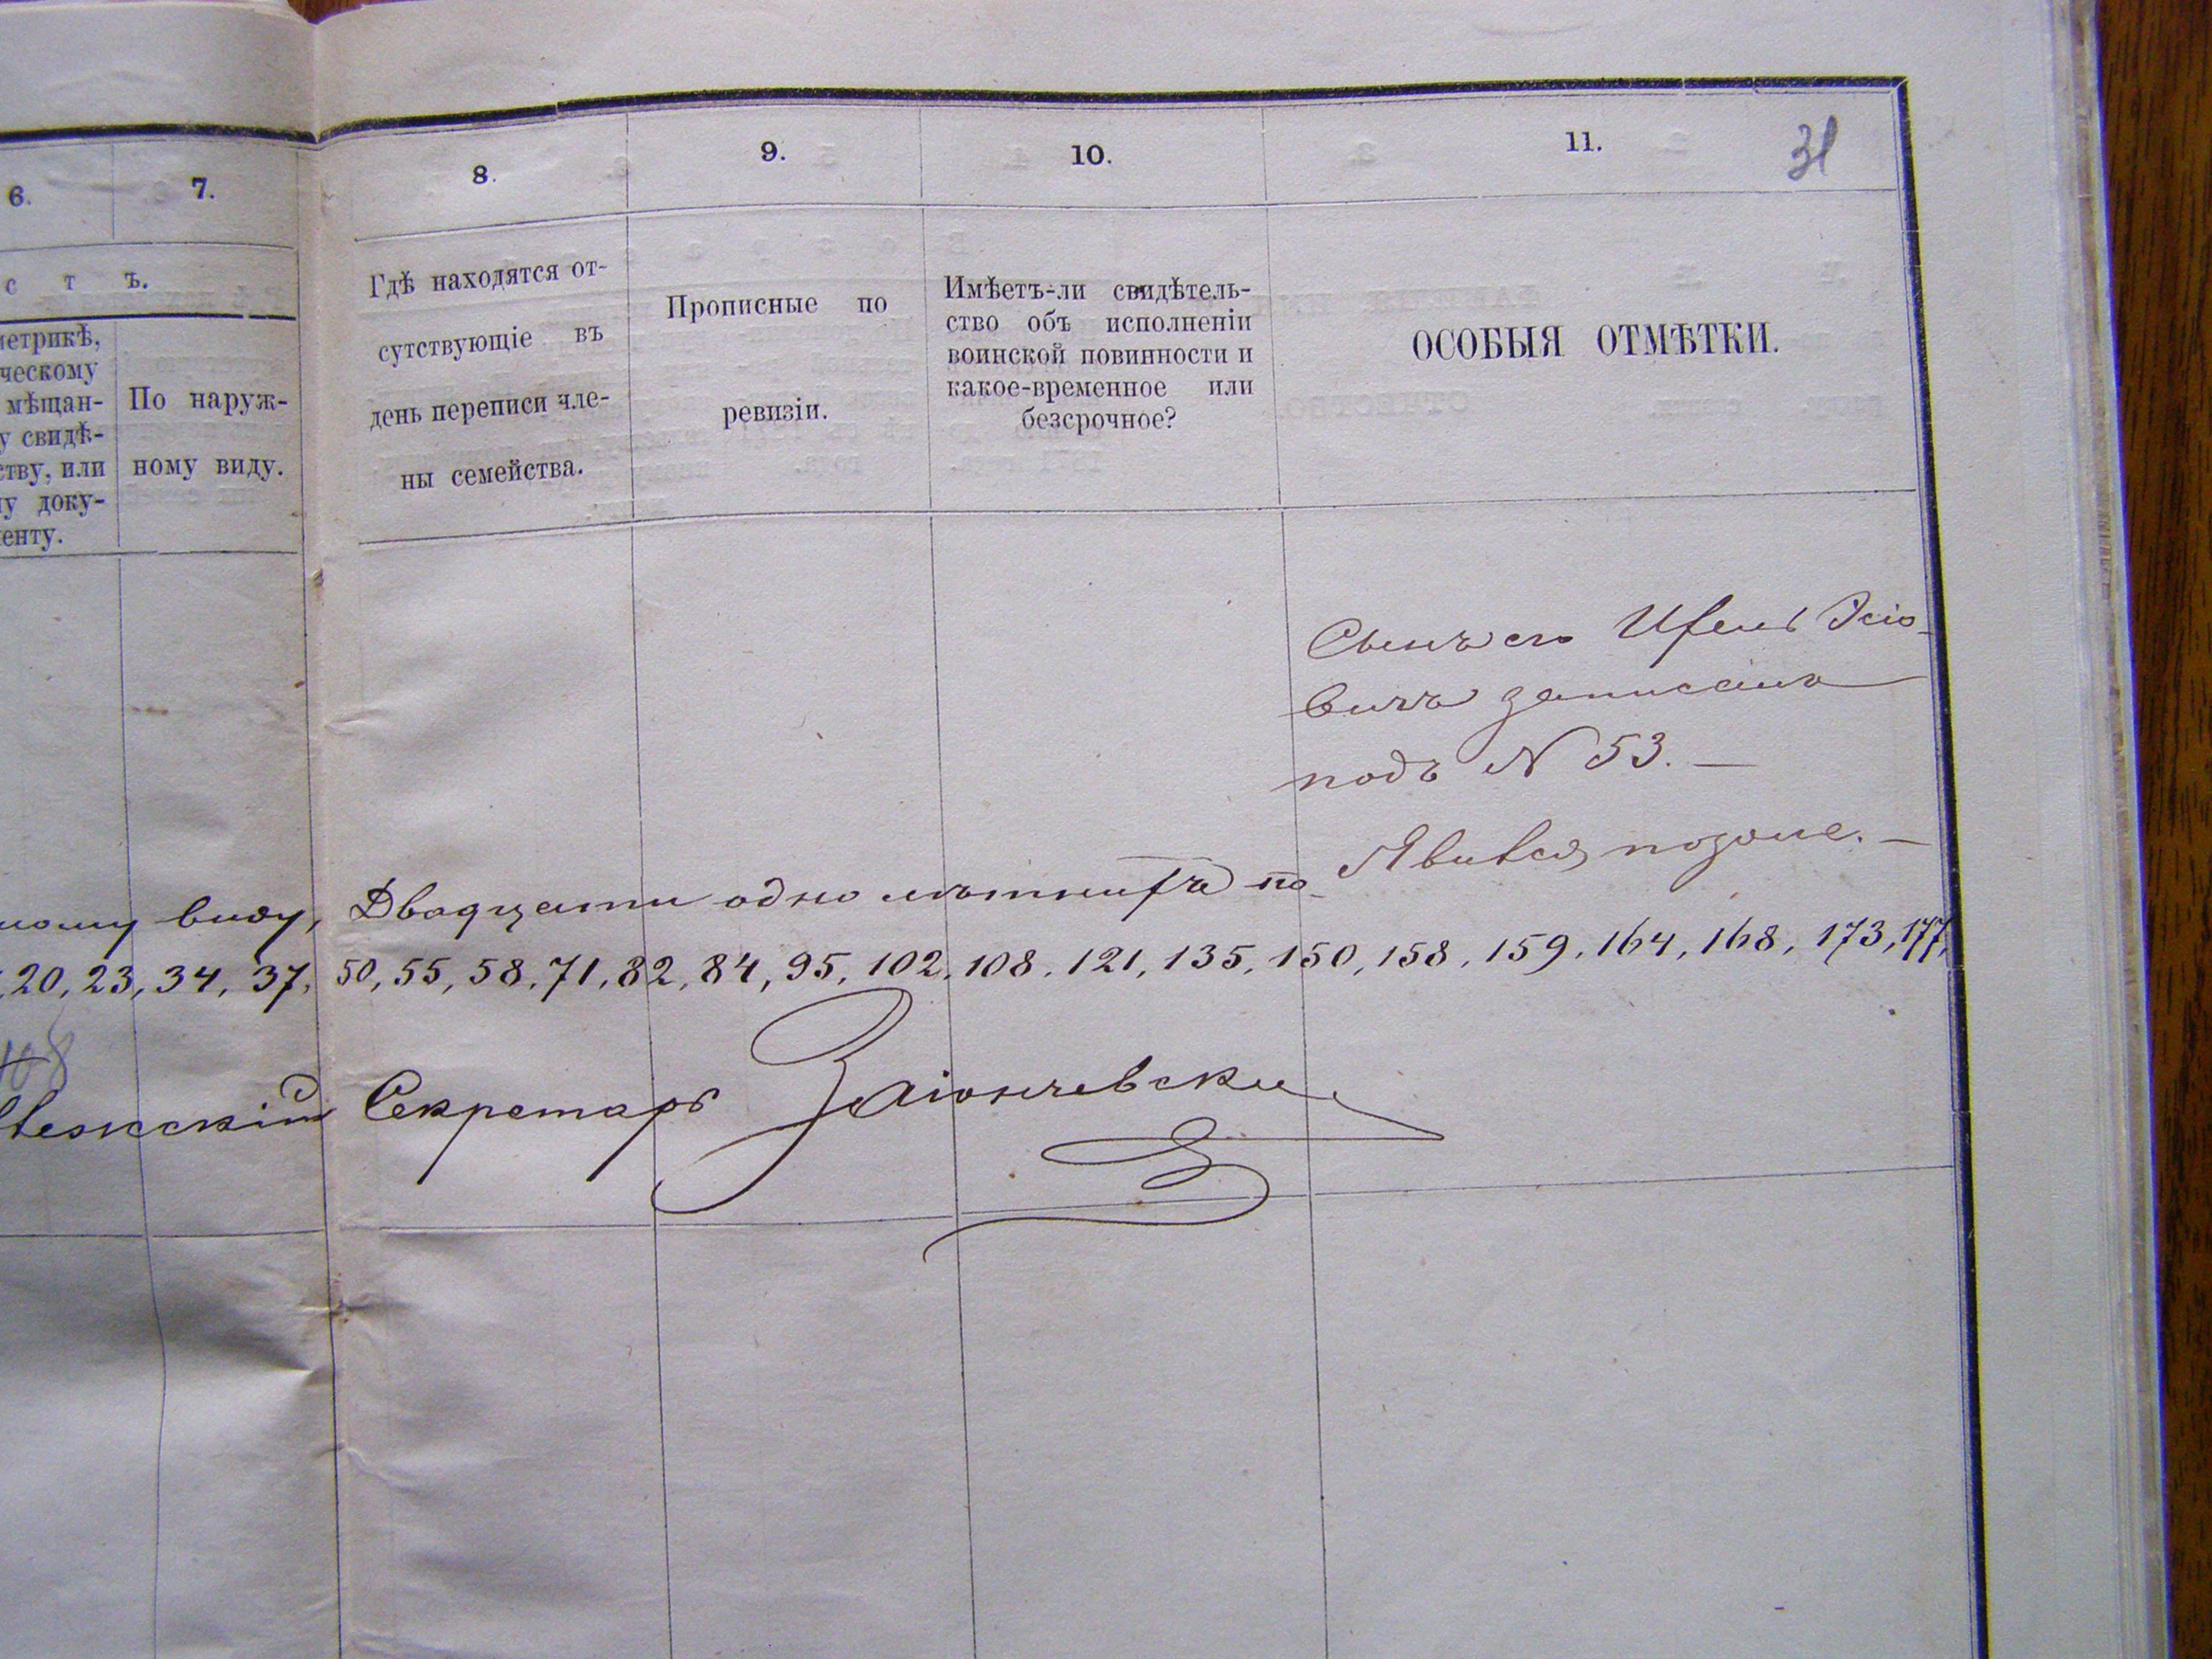 6.
7.
8.
9.
10.
11.
31
с т ъ.
метрикѣ,
ческому
мѣщан-
у свидѣ-
ству, или
му доку-
менту.
По наруж-
ному виду.
Гдѣ находятся от-
сутствующіе въ
день переписи чле-
ны семейства.
Прописные по
ревизіи.
Имѣетъ-ли свидѣтель-
ство объ исполненіи
воинской повинности и
какое-временное или
безсрочное?
ОСОБЫЯ ОТМѢТКИ.
Сынъ его
вичъ записанъ
подъ N 53. —
Явился позже. —
ному виду, Двадцати одно лѣтнихъ по-
20, 23, 34, 37, 50, 55, 58, 71, 82, 84, 95, 102, 108, 121, 135, 150, 158, 159, 164, 168, 173, 177,
Секретарь Заіончевски